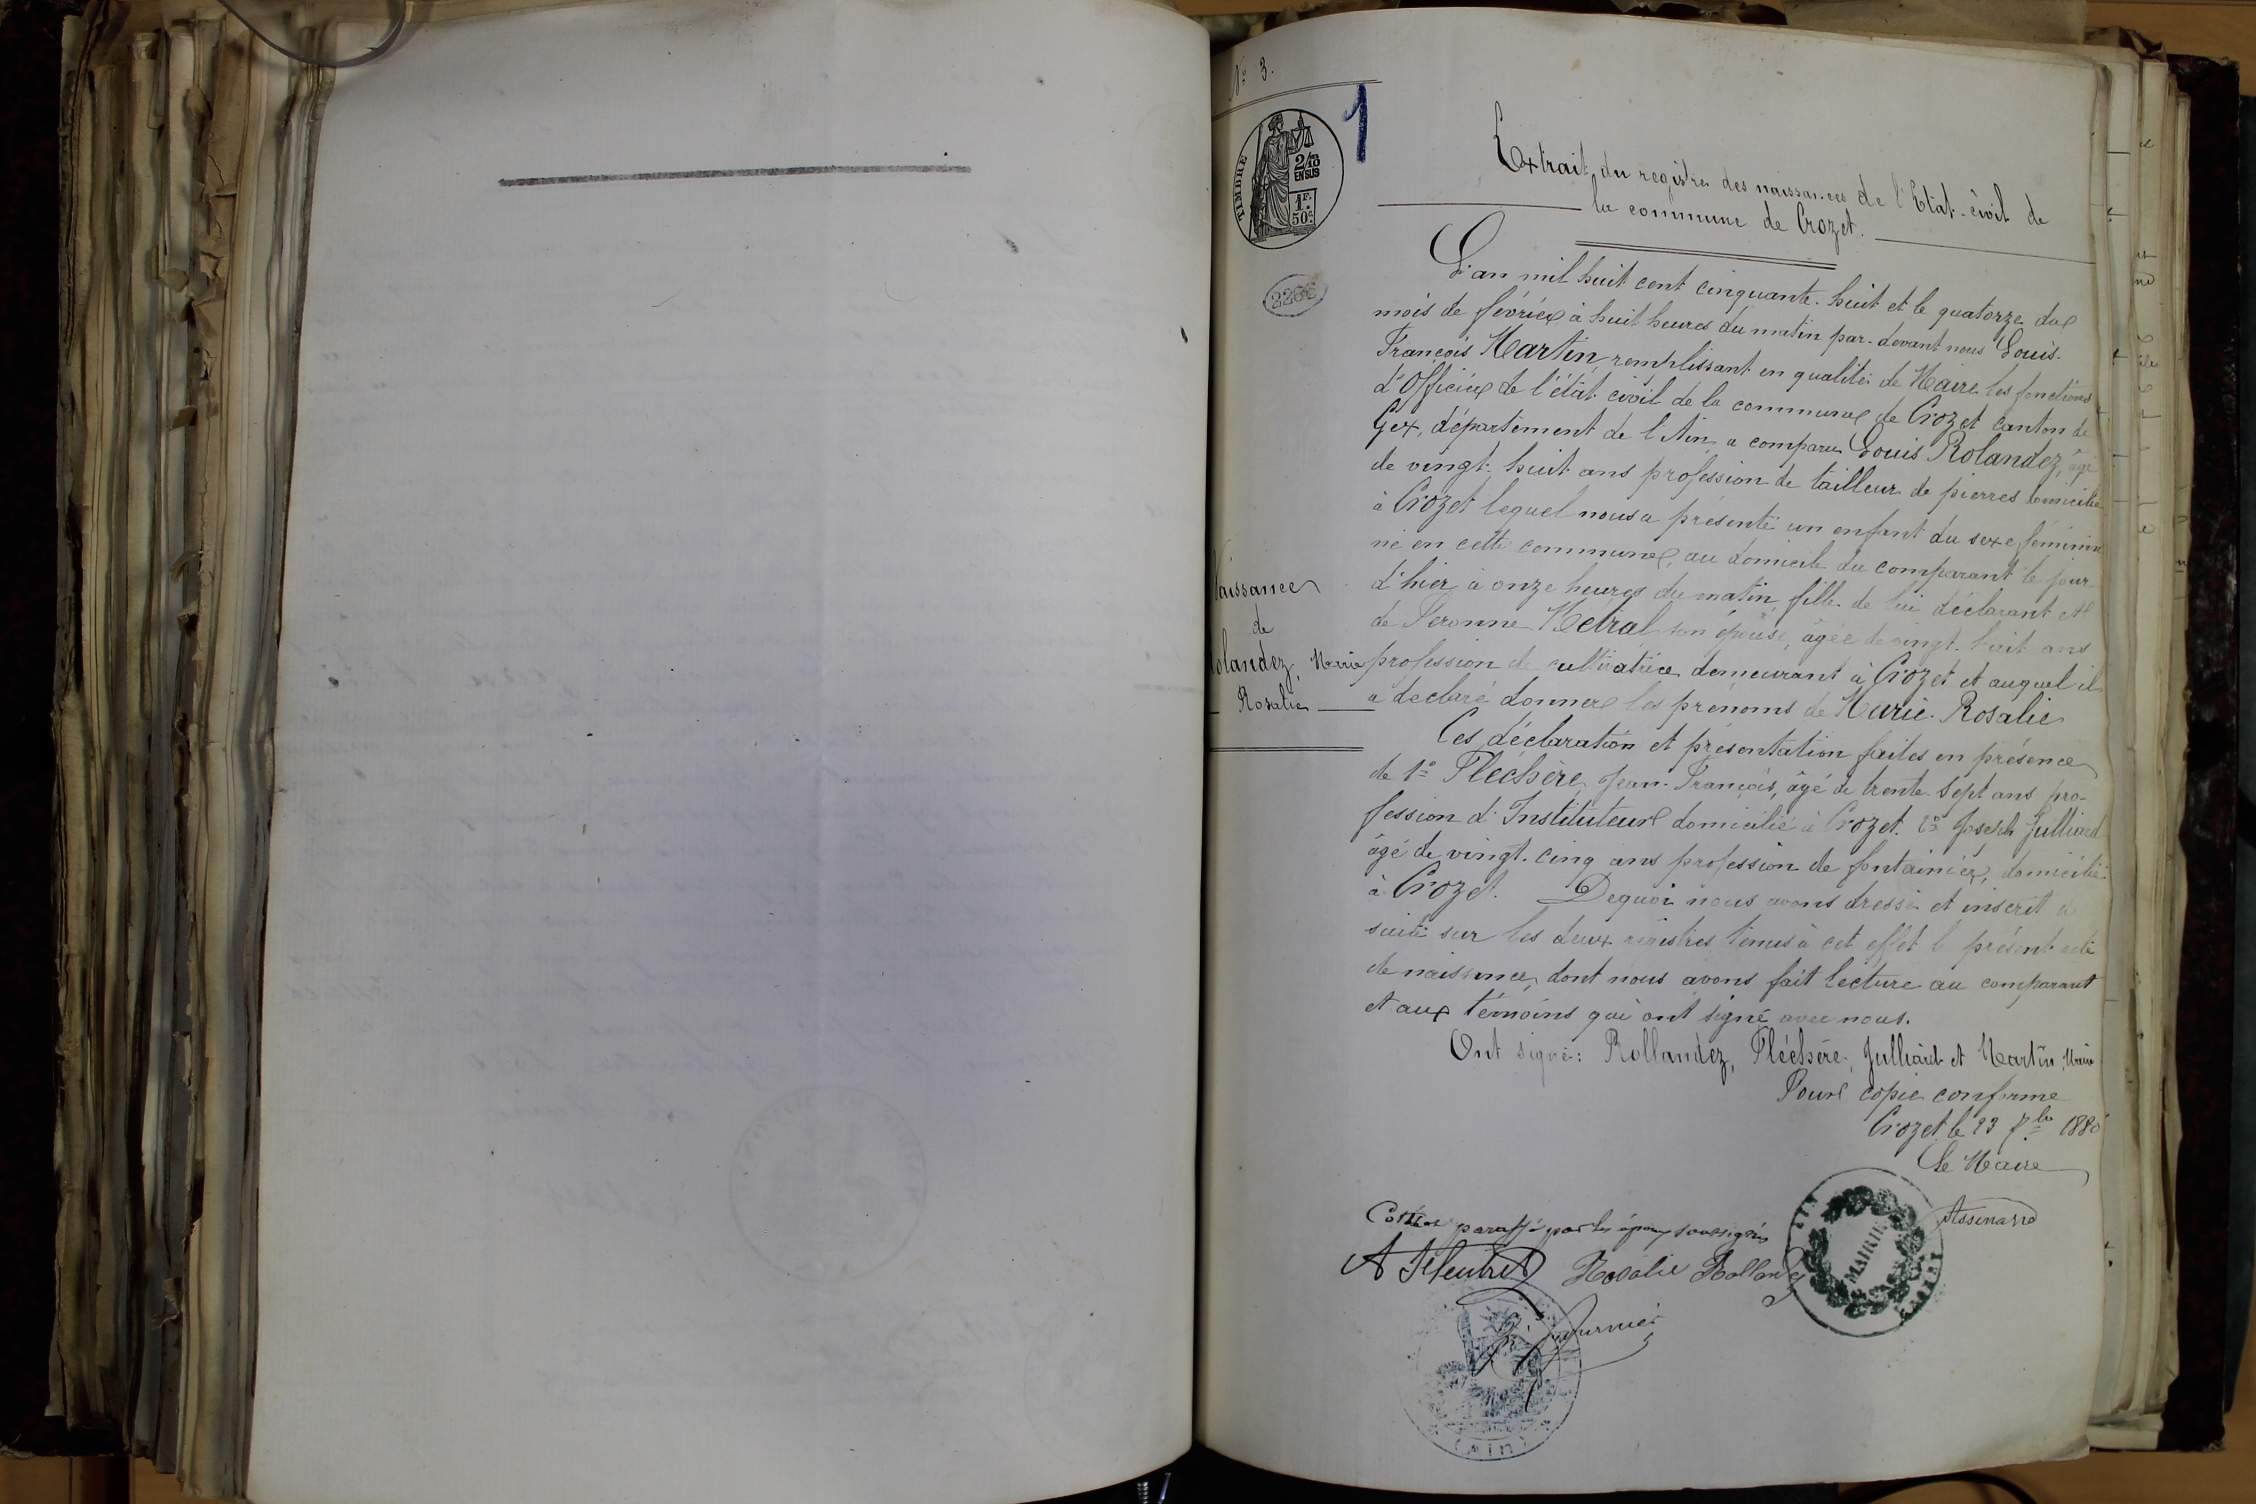 N° 3.
1
TIMBRE
2/10
EN SUS
1F.
50c.
2266
Extrait du registre des naissances de l'Etat-civil de
la commune de Crozet.
L'an mil huit cent cinquante-huit et le quatorze du
mois de février à huit heures du matin par-devant nous Louis-
François Martin, remplissant en qualité de Maire les fonctions
d'Officier de l'état civil de la commune de Crozet canton de
Gex, département de l'Ain, a comparu Louis Rolandez, âgé
de vingt-huit ans profession de tailleur de pierres domicilié
à Crozet lequel nous a présenté un enfant du sexe féminin
né en cette commune, au domicile du comparant le jour
d'hier à onze heures du matin, fille de lui déclarant et
de Peronne Métral son épouse, âgée de vingt-huit ans
profession de cultivatrice demeurant à Crozet et auquel il
a déclaré donner les prénoms de Marie-Rosalie
Naissance
de
Rolandez, Marie
Rosalie
Ces déclaration et présentation faites en présence
de 1° Fléchère, Jean-François, âgé de trente-sept ans pro-
fession d'Instituteur domicilié à Crozet. 2° Joseph Julliard
âgé de vingt-cinq ans profession de fontainier, domicilié
à Crozet. Dequoi nous avons dressé et inscrit de
suite sur les deux registres tenus à cet effet le présent acte
de naissance, dont nous avons fait lecture au comparant
et aux témoins qui ont signé avec nous.
Ont signé: Rollandez, Fléchère, Julliard et Martin, Maire
Pour copie conforme
Crozet le 23 7bre 1880
Le Maire
Cotté et paraffé par les époux soussignés
Rosalie Rollandez
MAIRIE
(Ain)